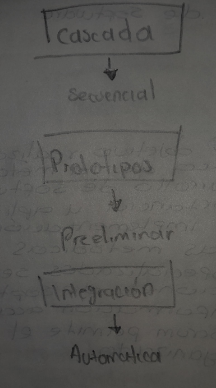 Cascada
Secuencial
Prototipos
Preeliminar
Integración
Automática